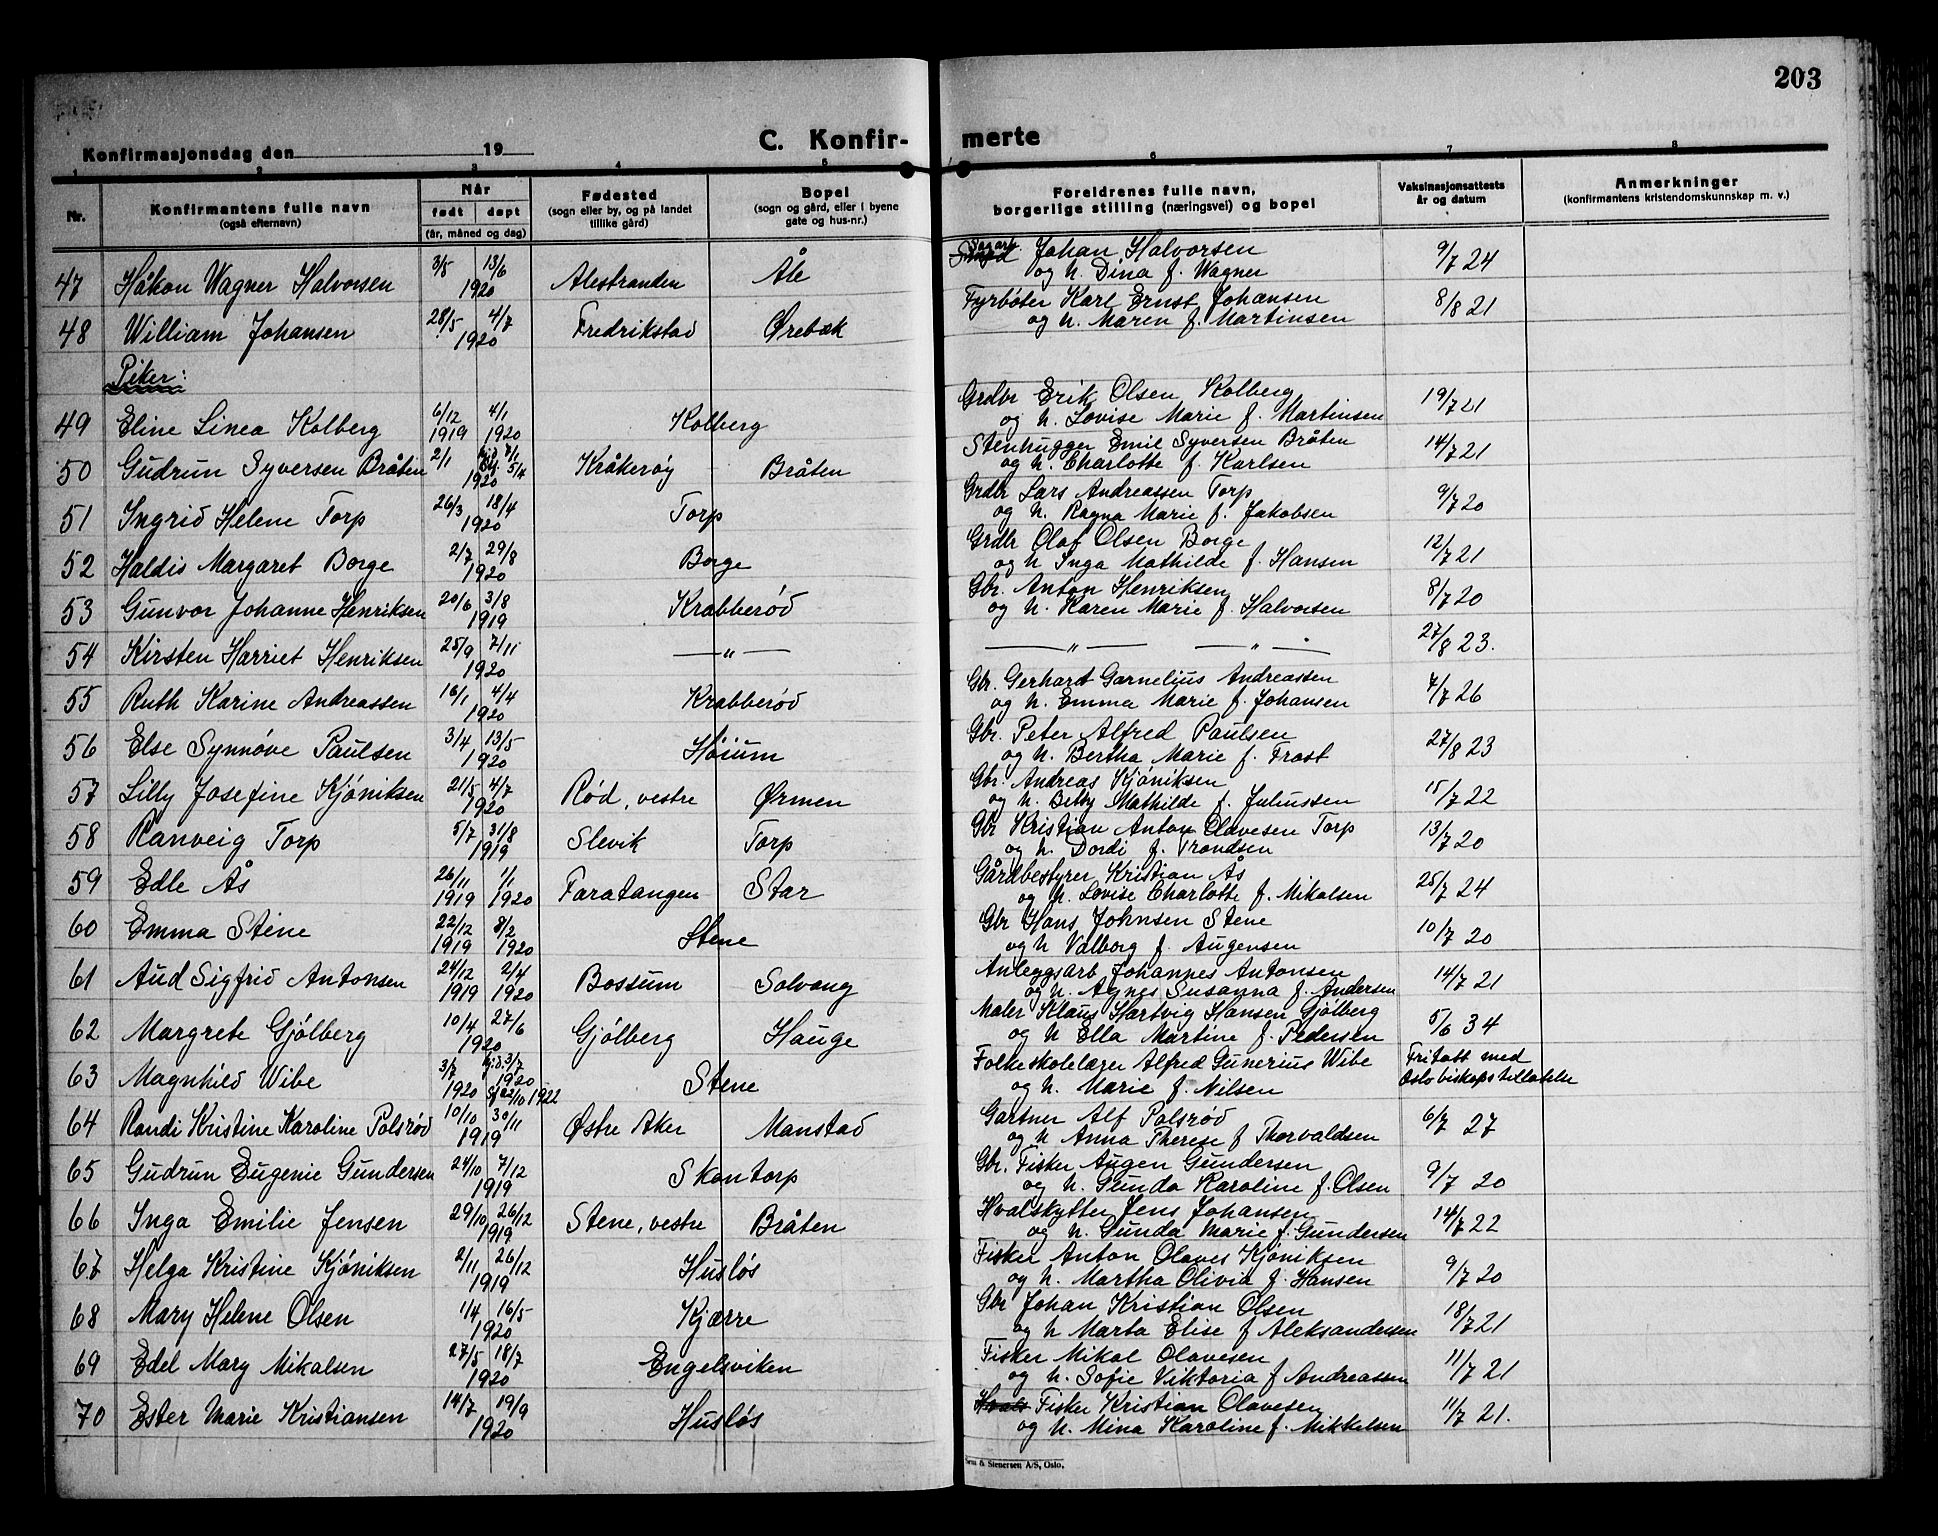 203
C. Konfir-merte
Konfirmasjonsdag den 19
1 2 3 4 5 6 7 8
Nr.
Konfirmantens fulle navn
(også efternavn)
Når
født døpt
(år, måned og dag)
Fødested
(sogn eller by, og på landet
tillike gård)
Bopel
(sogn og gård, eller i byene
gate og hus-nr.)
Foreldrenes fulle navn,
borgerlige stilling (næringsvei) og bopel
Vaksinasjonsattests
år og datum
Anmerkninger
(konfirmantens kristendomskunnskap m. v.)
47 Håkon Wagner Halvorsen 3/5 13/6 1920 Alestranden Åle Sagarb. Johan Halvorsen 9/7 24
og h. Dina f. Wagner
48 William Johansen 28/5 4/7 1920 Fredrikstad Ørebæk Fyrbøter Karl Ernst Johansen 8/8 21
og h. Maren f. Martinsen
Piker:
49 Eline Linea Kolberg 6/12 1919 4/1 1920 Kolberg Grdbr Erik Olsen Kolberg 19/7 21
og h. Lovise Marie f. Martinsen
50 Gudrun Syversen Bråten 2/1 7/1 5/4 1920 Kråkerøy Bråten Stenhugger Emil Syversen Bråten 14/7 21
og h. Charlotte f. Karlsen
51 Ingrid Helene Torp 26/3 18/4 1920 Torp Grdbr Lars Andreassen Torp 9/7 20
og h. Ragna Marie f. Jakobsen
52 Haldis Margaret Borge 2/7 29/8 1920 Borge Grdbr Olaf Olsen Borge 12/7 21
og h Inga Mathilde f. Hansen
53 Gunvor Johanne Henriksen 20/6 3/8 1919 Krabberød Gbr. Anton Henriksen 8/7 20
og h. Karen Marie f. Halvorsen
54 Kirsten Harriet Henriksen 25/9 7/11 1920 — " — — " — — " — 27/8 23.
55 Ruth Karine Andreassen 16/1 4/4 1920 Krabberød Gbr. Gerhard Garnelius Andreassen 7/7 26
og h. Emma Marie f. Johansen
56 Else Synnøve Paulsen 3/4 13/5 1920 Høium Gbr. Peter Alfred Paulsen 27/8 23
og h. Bertha Marie f. Frost
57 Lilly Josefine Kjøniksen 21/5 4/7 1920 Rød, vestre Ørmen Gbr. Andreas Kjøniksen 15/7 22
og h. Betsy Mathilde f. Juliussen
58 Ranveig Torp 5/7 31/8 1919 Slevik Torp Gbr Kristian Anton Olavesen Torp 13/7 20
og h. Dordi f. Trondsen
59 Edle Ås 26/11 1919 1/1 1920 Faratangen Star Gårdbestyrer Kristian Ås 25/7 24
og h. Lovise Charlotte f. Mikalsen
60 Emma Stene 22/12 1919 8/2 1920 Stene Gbr Hans Johnsen Stene 10/7 20
og h Valborg f. Augensen
61 Aud Sigfrid Antonsen 24/12 1919 2/4 1920 Bossum Solvang Anleggsarb Johannes Antonsen 14/7 21
og h. Agnes Susanna f. Andersen
62 Margrete Gjølberg 10/4 27/6 1920 Gjølberg Hauge Maler Klaus Hartvig Hansen Gjølberg 5/6 34
og h Ella Martine f. Pedersen
63 Magnhild Wibe 3/7 1920 3/7 1920 22/10 1922 Stene Folkeskolelærer Alfred Gunerius Wibe Fritatt med
og h. Marie f. Nilsen Oslo biskops tillatelse
64 Randi Kristine Karoline Polsrød 10/10 30/11 1919 Østre Aker Manstad Gartner Alf Polsrød 6/7 27
og h Anna Therese f Thorvaldsen
65 Gudrun Eugenie Gundersen 24/10 7/12 1919 Skontorp Gbr. Fisker Augen Gundersen 9/7 20
og h. Gunda Karoline f. Olsen
66 Inga Emilie Jensen 29/10 26/12 1919 Stene, vestre Bråten Hvalskytter Jens Johansen 14/7 22
og h. Gunda Marie f. Gundersen
67 Helga Kristine Kjøniksen 2/11 26/12 1919 Husløs Fisker Anton Olaves Kjøniksen 9/7 20
og h. Martha Olivia f. Hansen
68 Mary Helene Olsen 1/4 16/5 1920 Kjærre Gbr Johan Kristian Olsen 18/7 21
og h Marta Elise f Aleksandersen
69 Edel Mary Mikalsen 27/5 18/7 1920 Engelsviken Fisker Mikal Olavesen 11/7 21
og h. Sofie Viktoria f Andreassen
70 Ester Marie Kristiansen 14/7 19/9 1920 Husløs Fisker Kristian Olavesen 11/7 21.
og h. Mina Karoline f. Mikkelsen
& Stenersen A/S, Oslo.